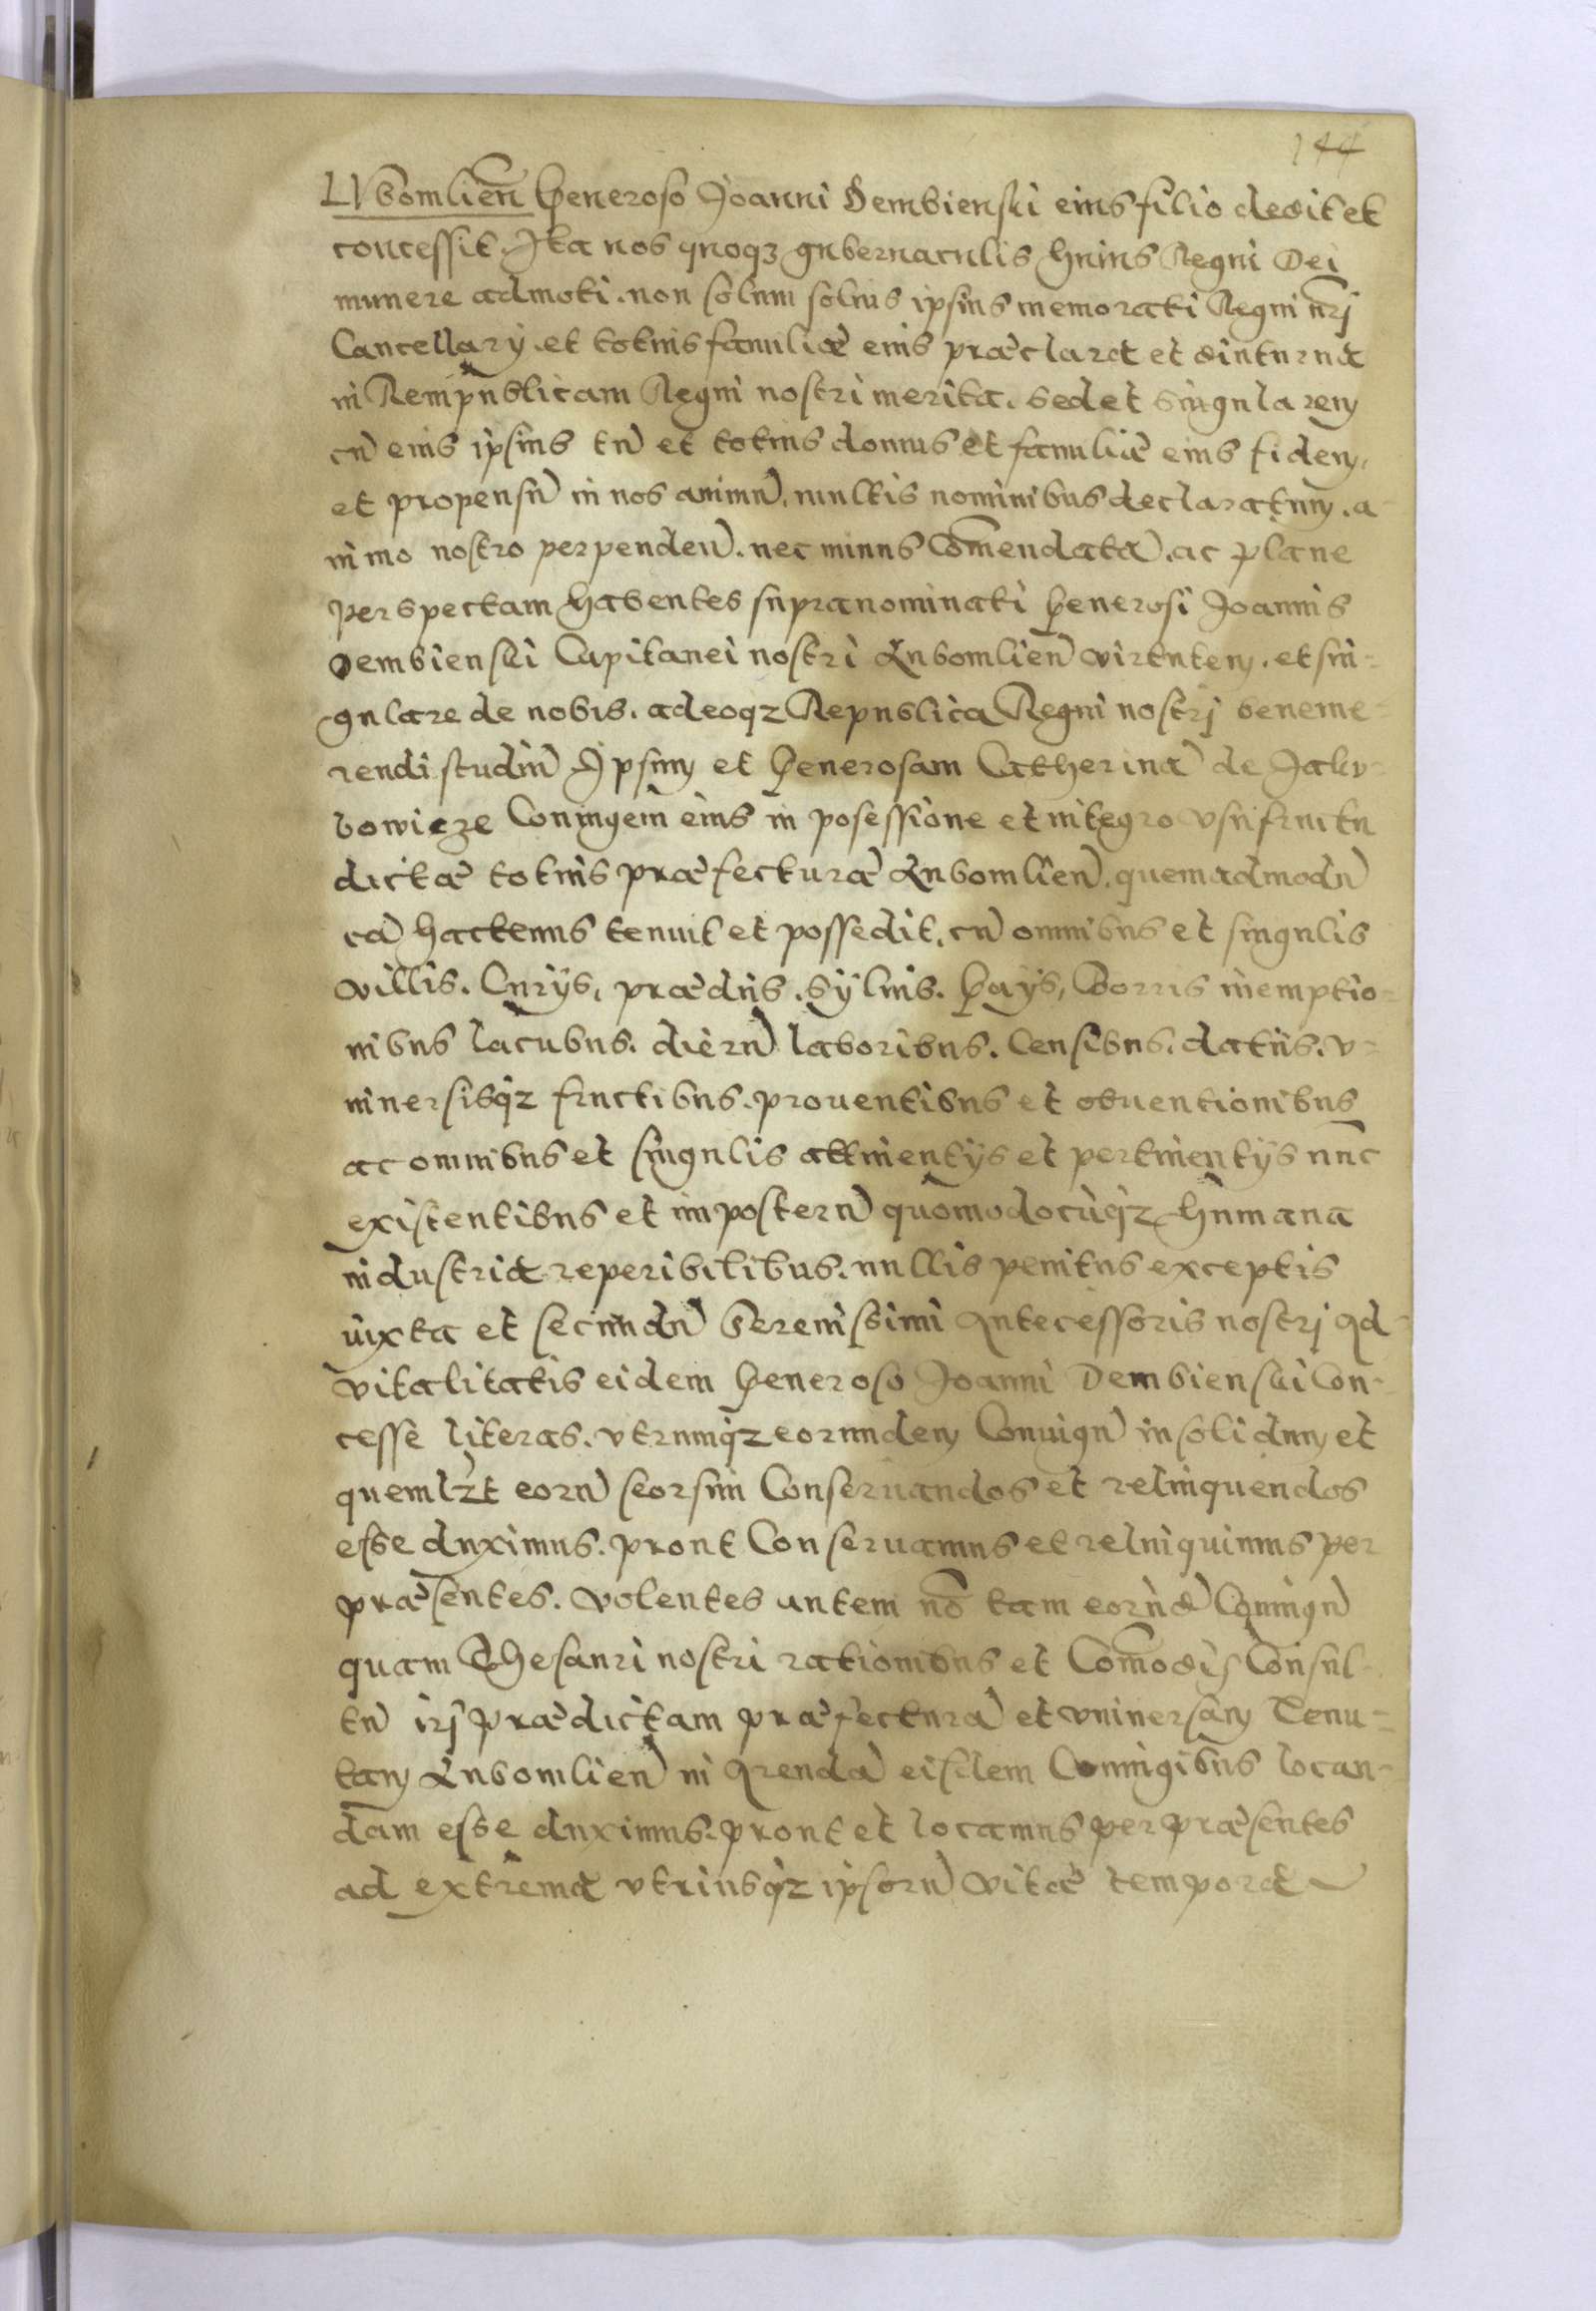 144
LVbomlień Generoso Joanni Dembienski eius filio dedit et
concessit. Ita nos quoqz gubernaculis huius Regni Dei
munere admoti. non solum solius ipsius memorati Regni nrj
Cancellarÿ. et totius familiæ eius præclara et diuturna
in Rempublicam Regni nostri merita. sed et singularem
cū eius ipsius tū et totius domus et familiæ eius fidem,
et propensū in nos animū, multis nominibus declaratum. a-
nimo nostro perpendeñ. nec minus Com̃endatā. ac plane
perspectam habentes supranominati Generosi Joannis
Dembienski Capitanei nostri Lubomlień virtutem. et sin-
gulare de nobis. adeoqz Republica Regni nostrj beneme-
rendi studiū Ipsum et Generosam Catherinā de Jaku-
bowicze Coniugem eius in posessione et integro vsufructu
dictæ totius præfecturæ Lubomlień. quemadmodū
eā hactenus tenuit et possedit, cū omnibus et singulis
villis. Curÿs, prædiis. Sÿluis. Gaÿs, Borris inemptio-
nibus lacubus. dierū laboribus. Censibus. datiis. v-
niuersisqz fructibus. prouentibus et obuentionibus
ac omnibus et singulis attinentÿs et pertinentÿs nunc
existentibus et imposterū quomodocūqz humana
industria reperibilibus. nullis penitus exceptis
iuxta et secundū Serenissimi Antecessoris nostrj Ad-
vitalitatis eidem Generoso Joanni Dembienski Con-
cesse literas. vtrumqz eorundem Coniugū in solidum et
quemlzt eorū seorsim Conseruandos et relinquendos
esse duximus. prout Conseruamus et relinquimus per
præsentes. Volentes autem nō tam eorūdē Coniugū
quam Thesauri nostri rationibus et Com̃odis Consul-
tū irj prædictam præfecturā et vniuersam Tenu-
tam Lubomlień in Arendā eisdem Coniugibus locan-
dam esse duximus. prout et locamus per præsentes
ad extrema vtriusqz ipsorū vitæ tempora